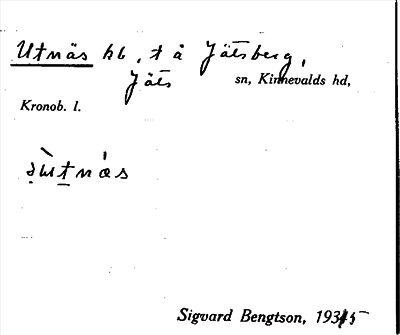 Utnäs hb, t å Jätsberg,
Jäts sn, Kinnevalds hd,
Kronob. l.
Sigvard Bengtson, 1935